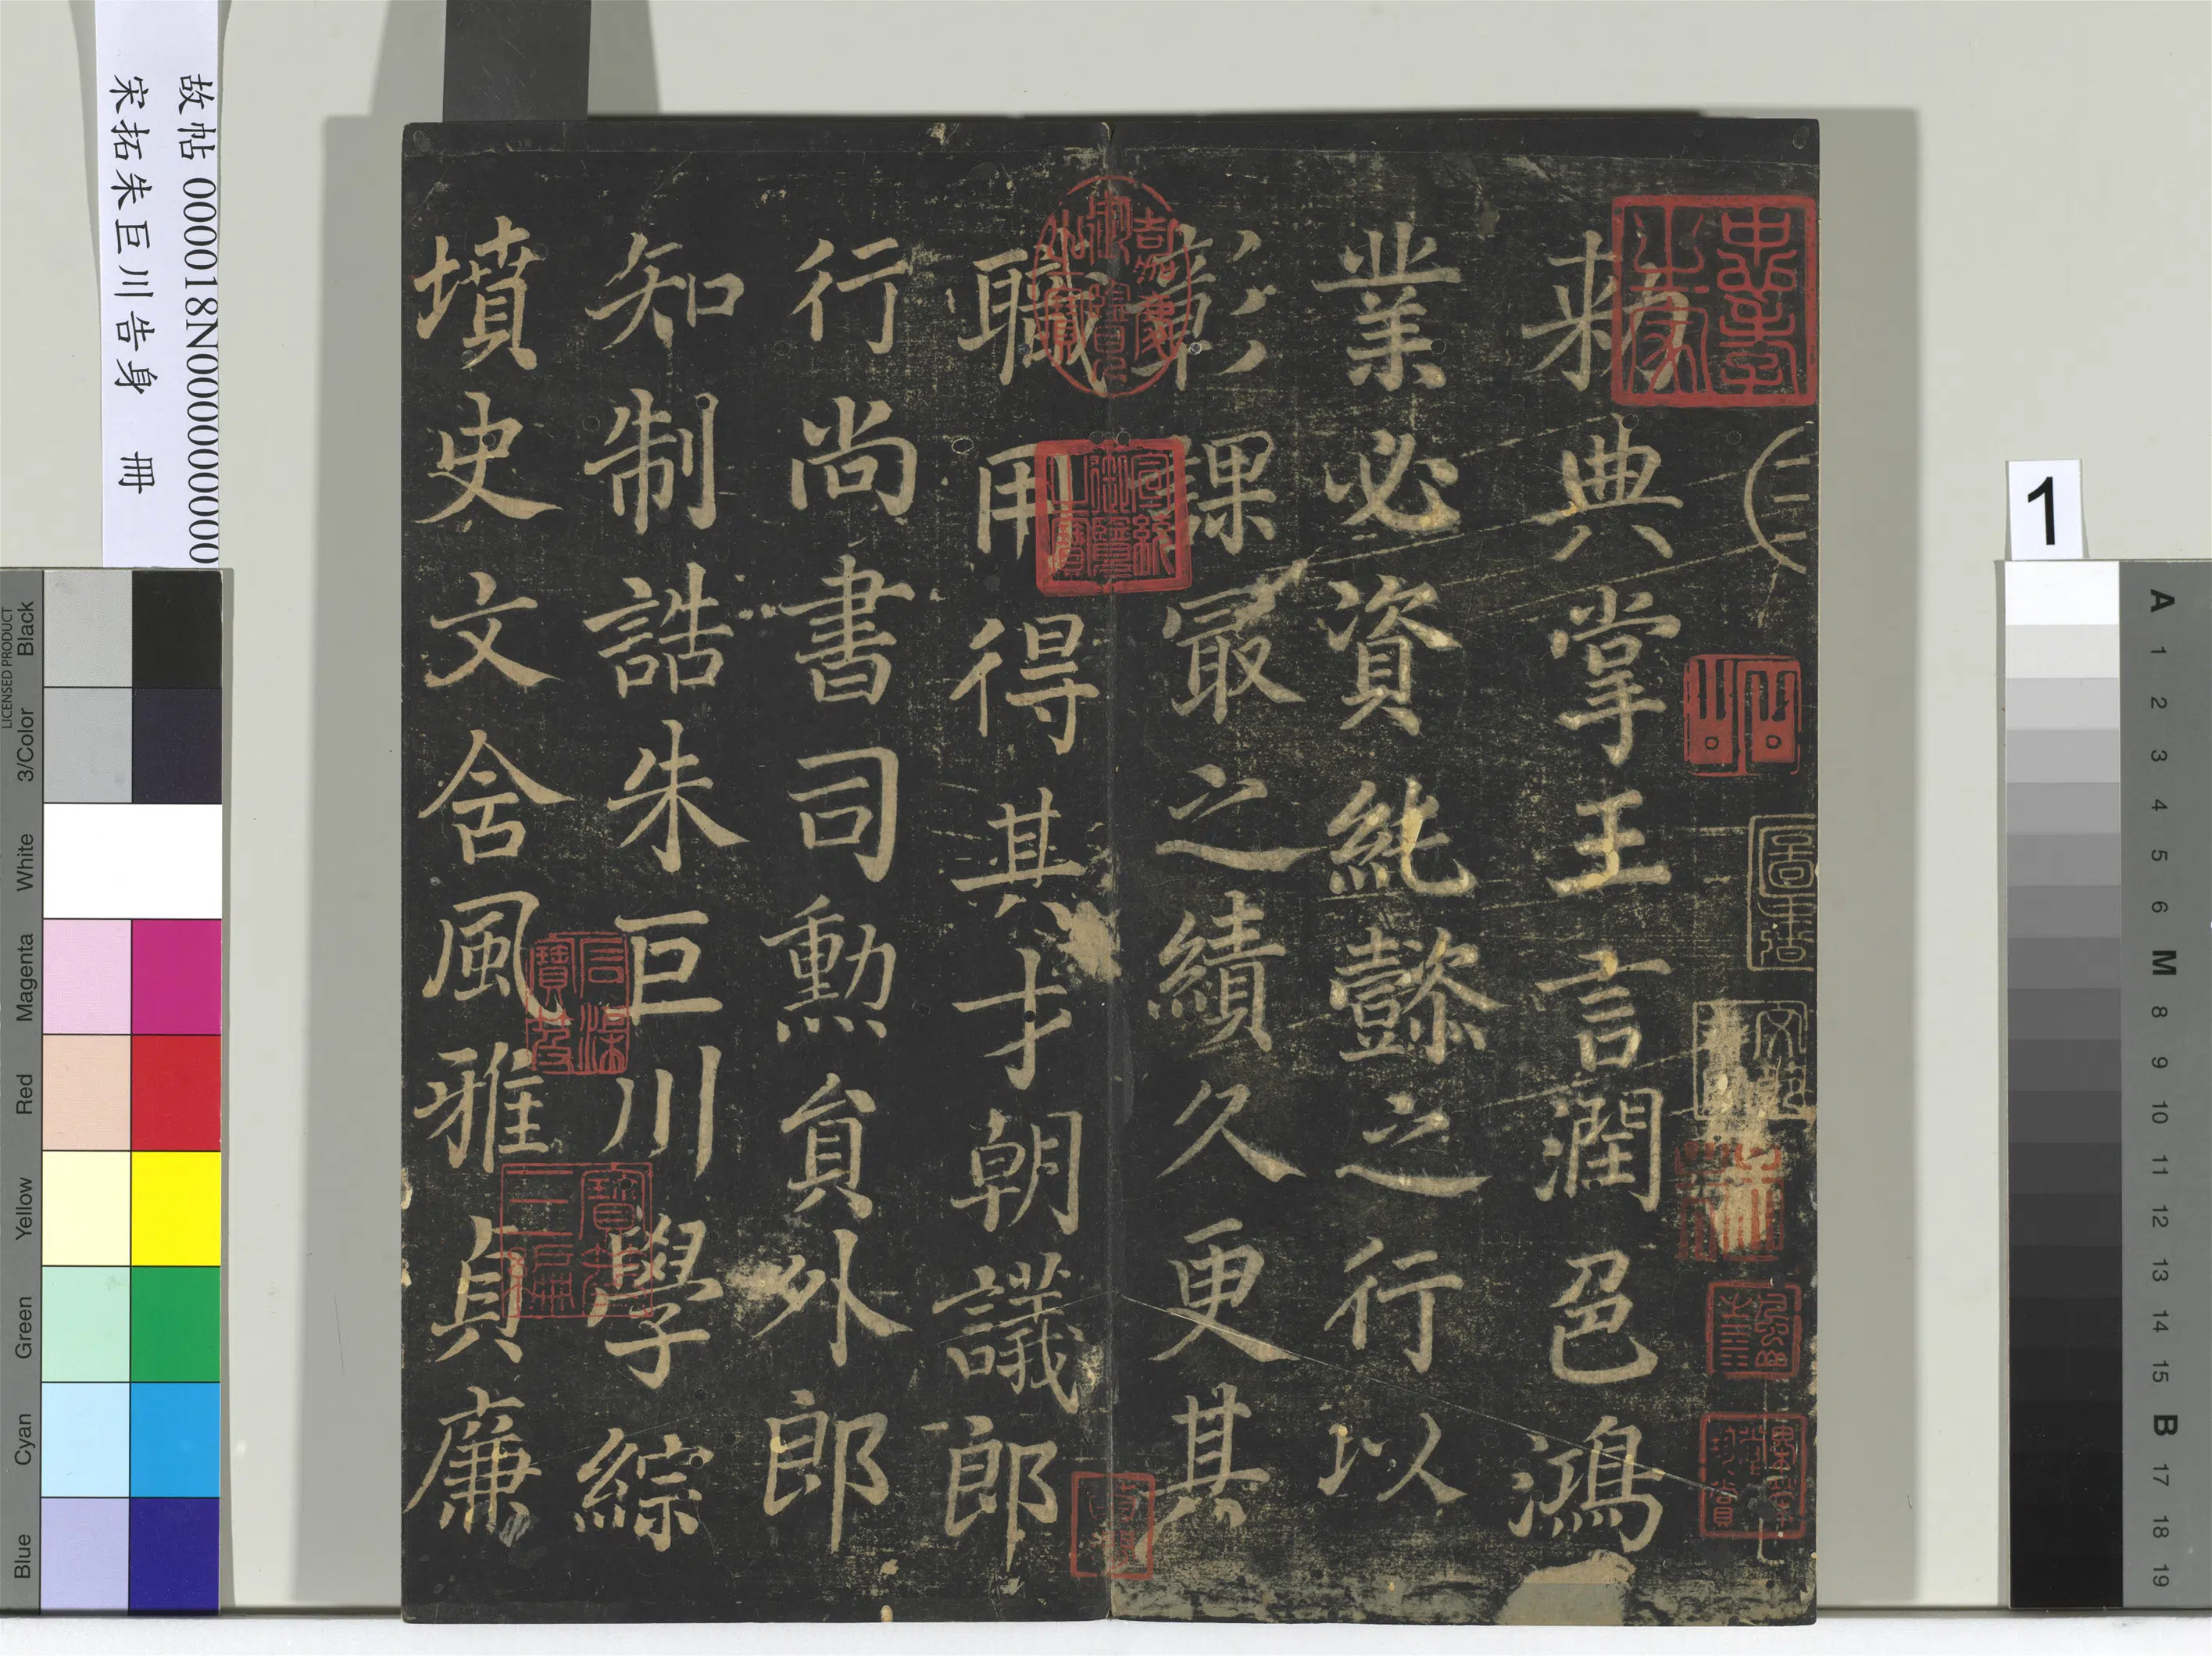 敕典掌王言潤色鴻
業必資純懿之行以
彰課最之績久更其
職用得其才朝議郎
行尚書司勳員外郎
知制誥朱巨川學綜
墳史文含風雅貞廉
故帖 000018N000000000
宋拓朱巨川告身 冊
1
嘉慶御覽之寶
宣統御覽之寶
寶笈三編
LICENSED PRODUCT
Black
3/Color
White
Magenta
Red
Yellow
Green
Cyan
Blue
A
1
2
3
4
5
6
M
8
9
10
11
12
13
14
15
B
17
18
19